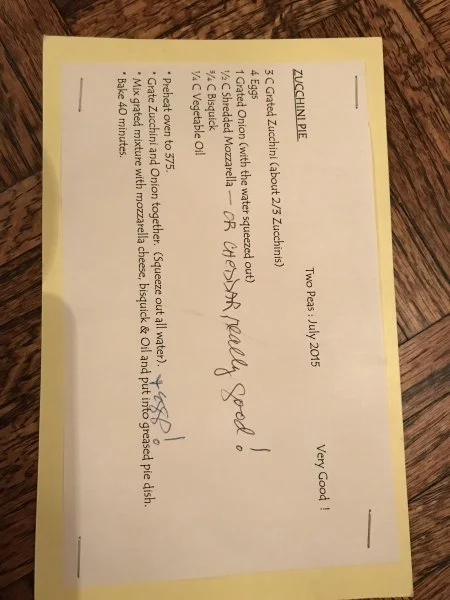 Two Peas : July 2015 Very Good !
ZUCCHINI PIE
3 C Grated Zucchini (about 2/3 Zucchinis)
4 Eggs
1 Grated Onion (with the water squeezed out)
½ C Shredded Mozzarella — OR CHEDDAR, really good!
¾ C Bisquick
¼ C Vegetable Oil
* Preheat oven to 375.
* Grate Zucchini and Onion together. (Squeeze out all water).
+ eggs!
* Mix grated mixture with mozzarella cheese, bisquick & Oil and put into greased pie dish.
* Bake 40 minutes.